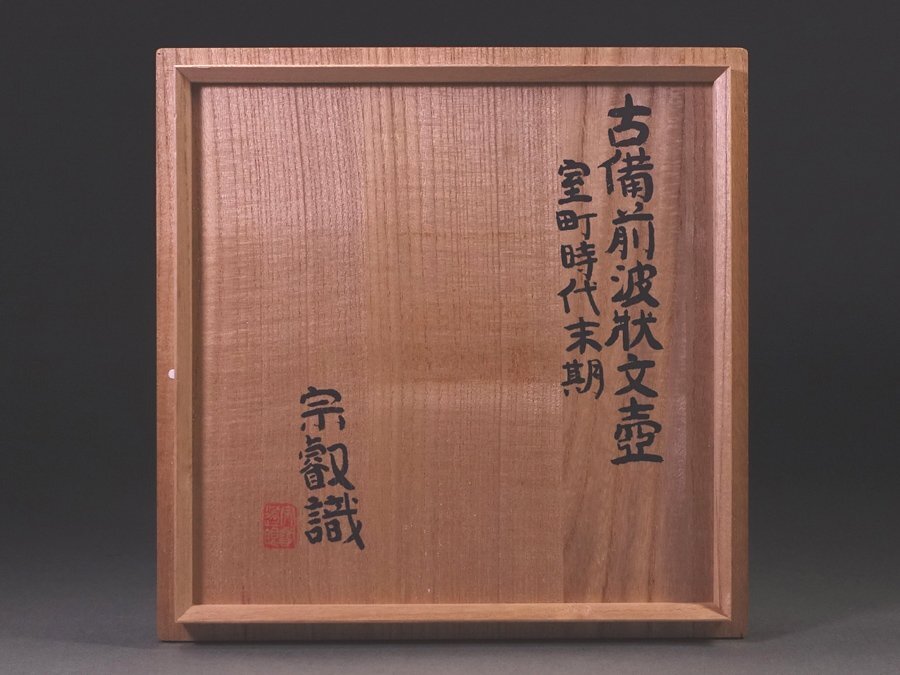 古備前波狀文壺
室町時代末期
宗叡識